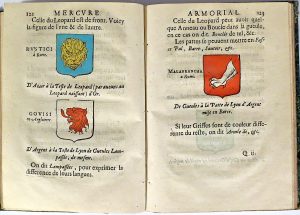 122 MERCVRE
Celle du Leopard est de front. Voicy
la figure de l'une & de l'autre.
RVSTICI
à Rome.
D'Azur à la Teste de Leopard; par aucuns au
Leopard naissant d'Or.
GOVISI
en Angleterre.
D'Argent à la Teste de Lyon de Gueules Lam-
passée, de mesme.
On dit Lampassée, pour exprimer la
difference de leurs langues.
ARMORIAL. 123
Celle du Leopard peut avoir quel-
que Anneau ou Boucle dans la gueule,
en ce cas on dit Bouclé de tel, &c.
Les pattes se peuvent mettre en Fas-
ce Pal, Barre, Sautoir, &c.
MALAFRANCHA
à Rome.
De Gueules à la Patte de Lyon d'Argent
mise en Barre.
Si leur Griffes sont de couleur diffe-
rente du reste, on dit Armée de, &c.
Q ii